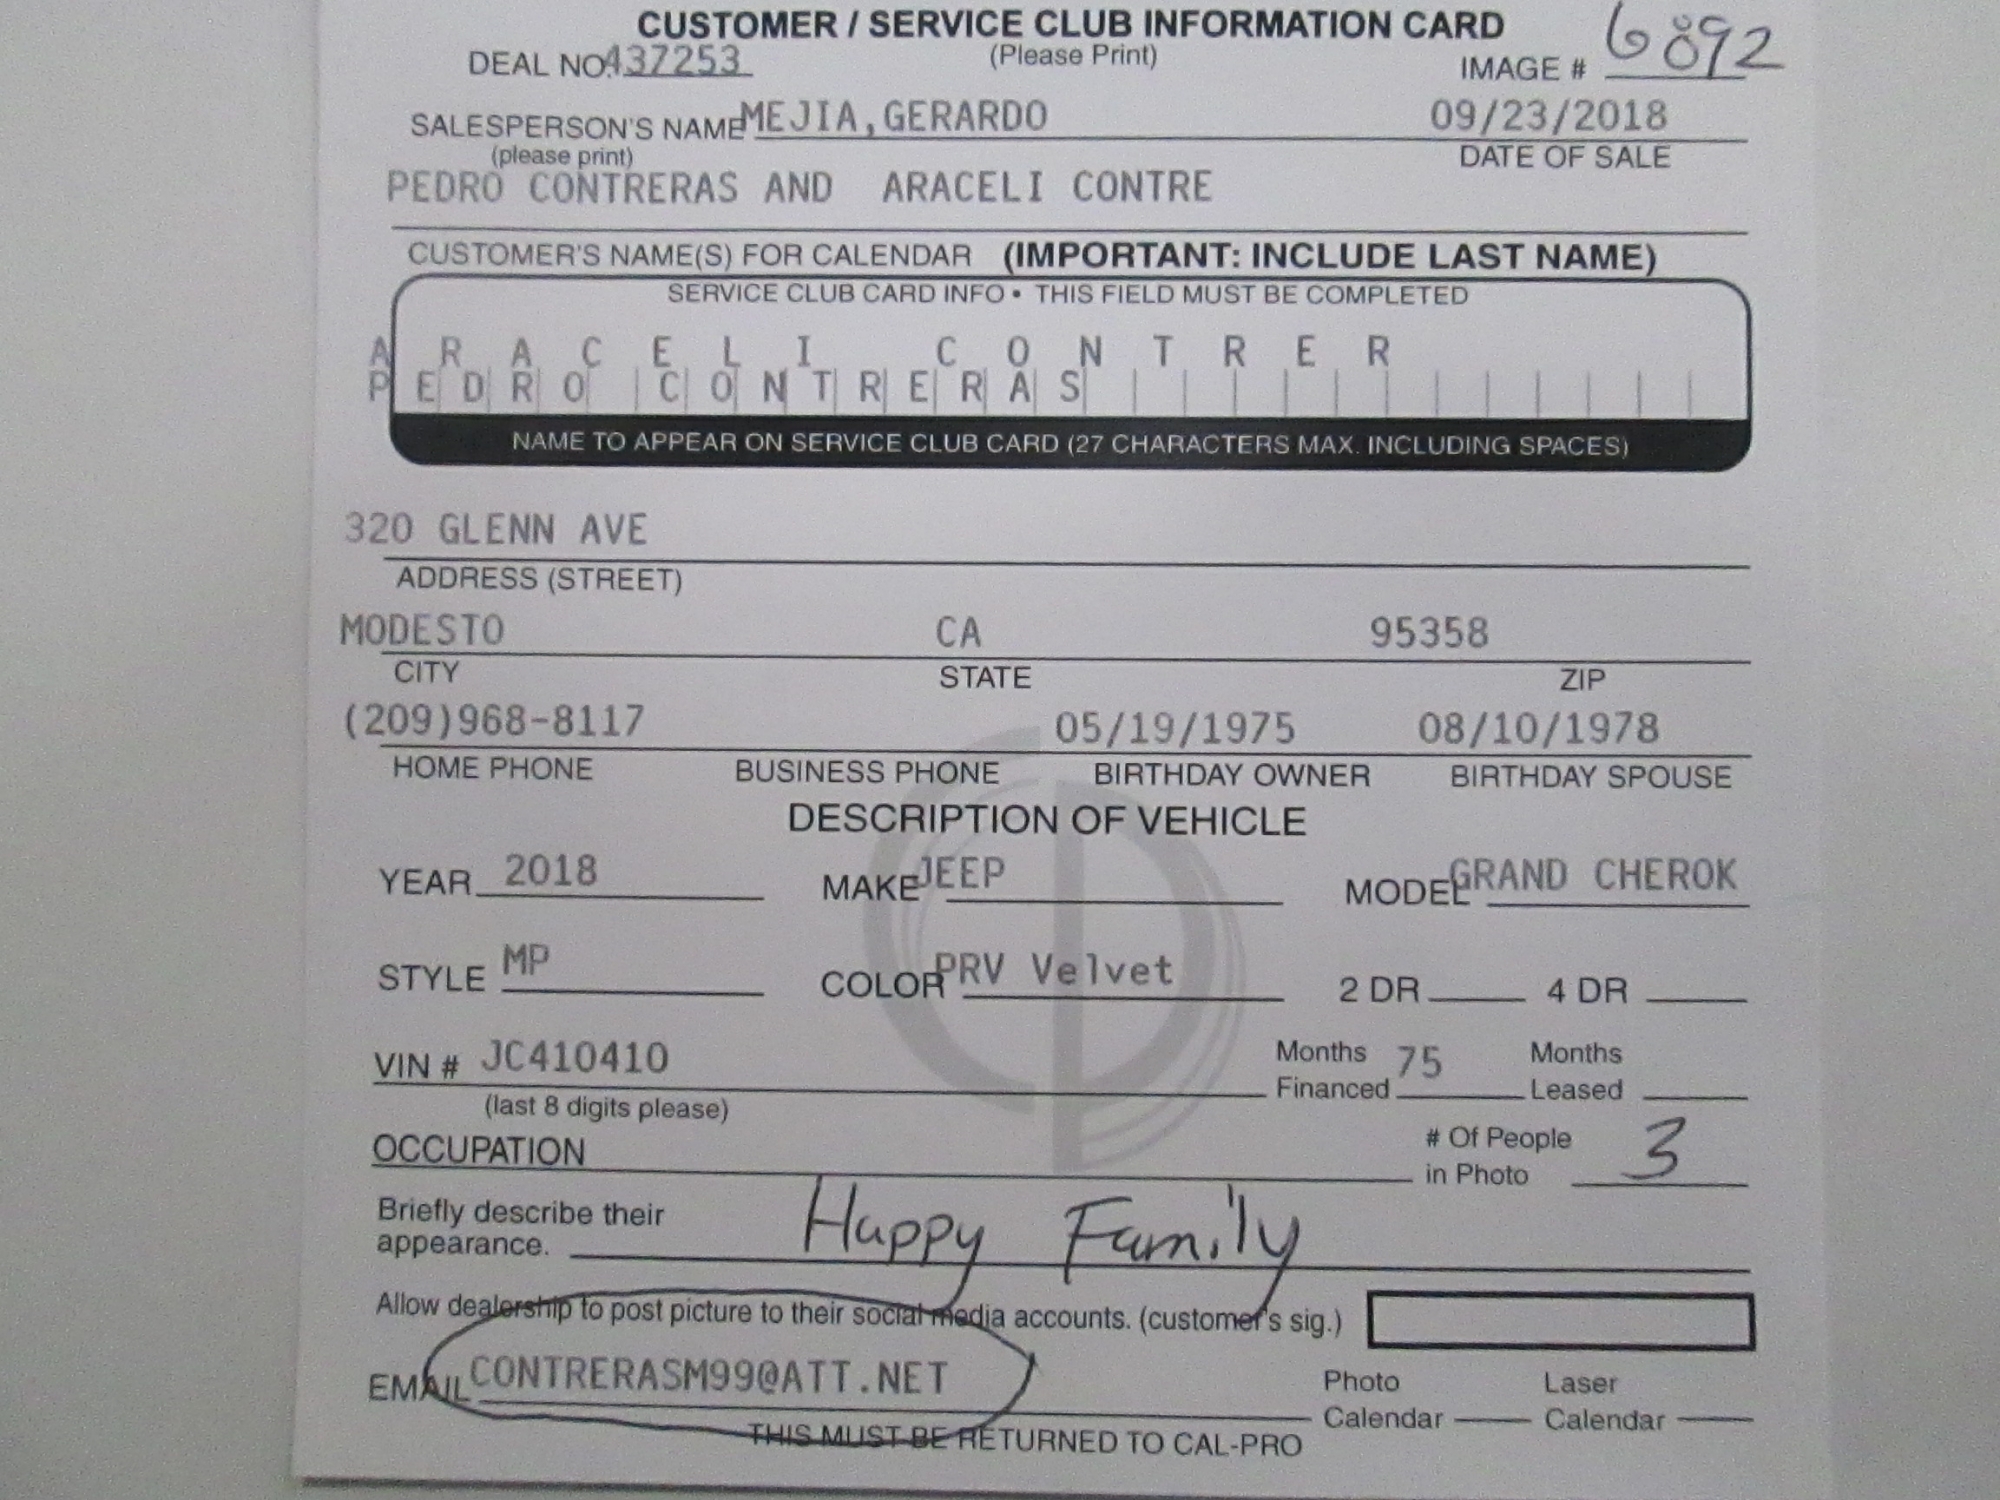 CUSTOMER / SERVICE CLUB INFORMATION CARD
DEAL NO. 437253 (Please Print) IMAGE # 6892
SALESPERSON'S NAME MEJIA,GERARDO 09/23/2018
(please print) DATE OF SALE
PEDRO CONTRERAS AND ARACELI CONTRE
CUSTOMER'S NAME(S) FOR CALENDAR (IMPORTANT: INCLUDE LAST NAME)
SERVICE CLUB CARD INFO • THIS FIELD MUST BE COMPLETED
ARACELI CONTRER
PEDRO CONTRERAS
NAME TO APPEAR ON SERVICE CLUB CARD (27 CHARACTERS MAX. INCLUDING SPACES)
320 GLENN AVE
ADDRESS (STREET)
MODESTO CA 95358
CITY STATE ZIP
(209)968-8117 05/19/1975 08/10/1978
HOME PHONE BUSINESS PHONE BIRTHDAY OWNER BIRTHDAY SPOUSE
DESCRIPTION OF VEHICLE
YEAR 2018 MAKE JEEP MODEL GRAND CHEROK
STYLE MP COLOR PRV Velvet 2 DR 4 DR
VIN # JC410410 Months Financed 75 Months Leased
(last 8 digits please)
OCCUPATION # Of People in Photo 3
Briefly describe their appearance. Happy Family
Allow dealership to post picture to their social media accounts. (customer's sig.)
EMAIL CONTRERASM99@ATT.NET Photo Calendar Laser Calendar
THIS MUST BE RETURNED TO CAL-PRO